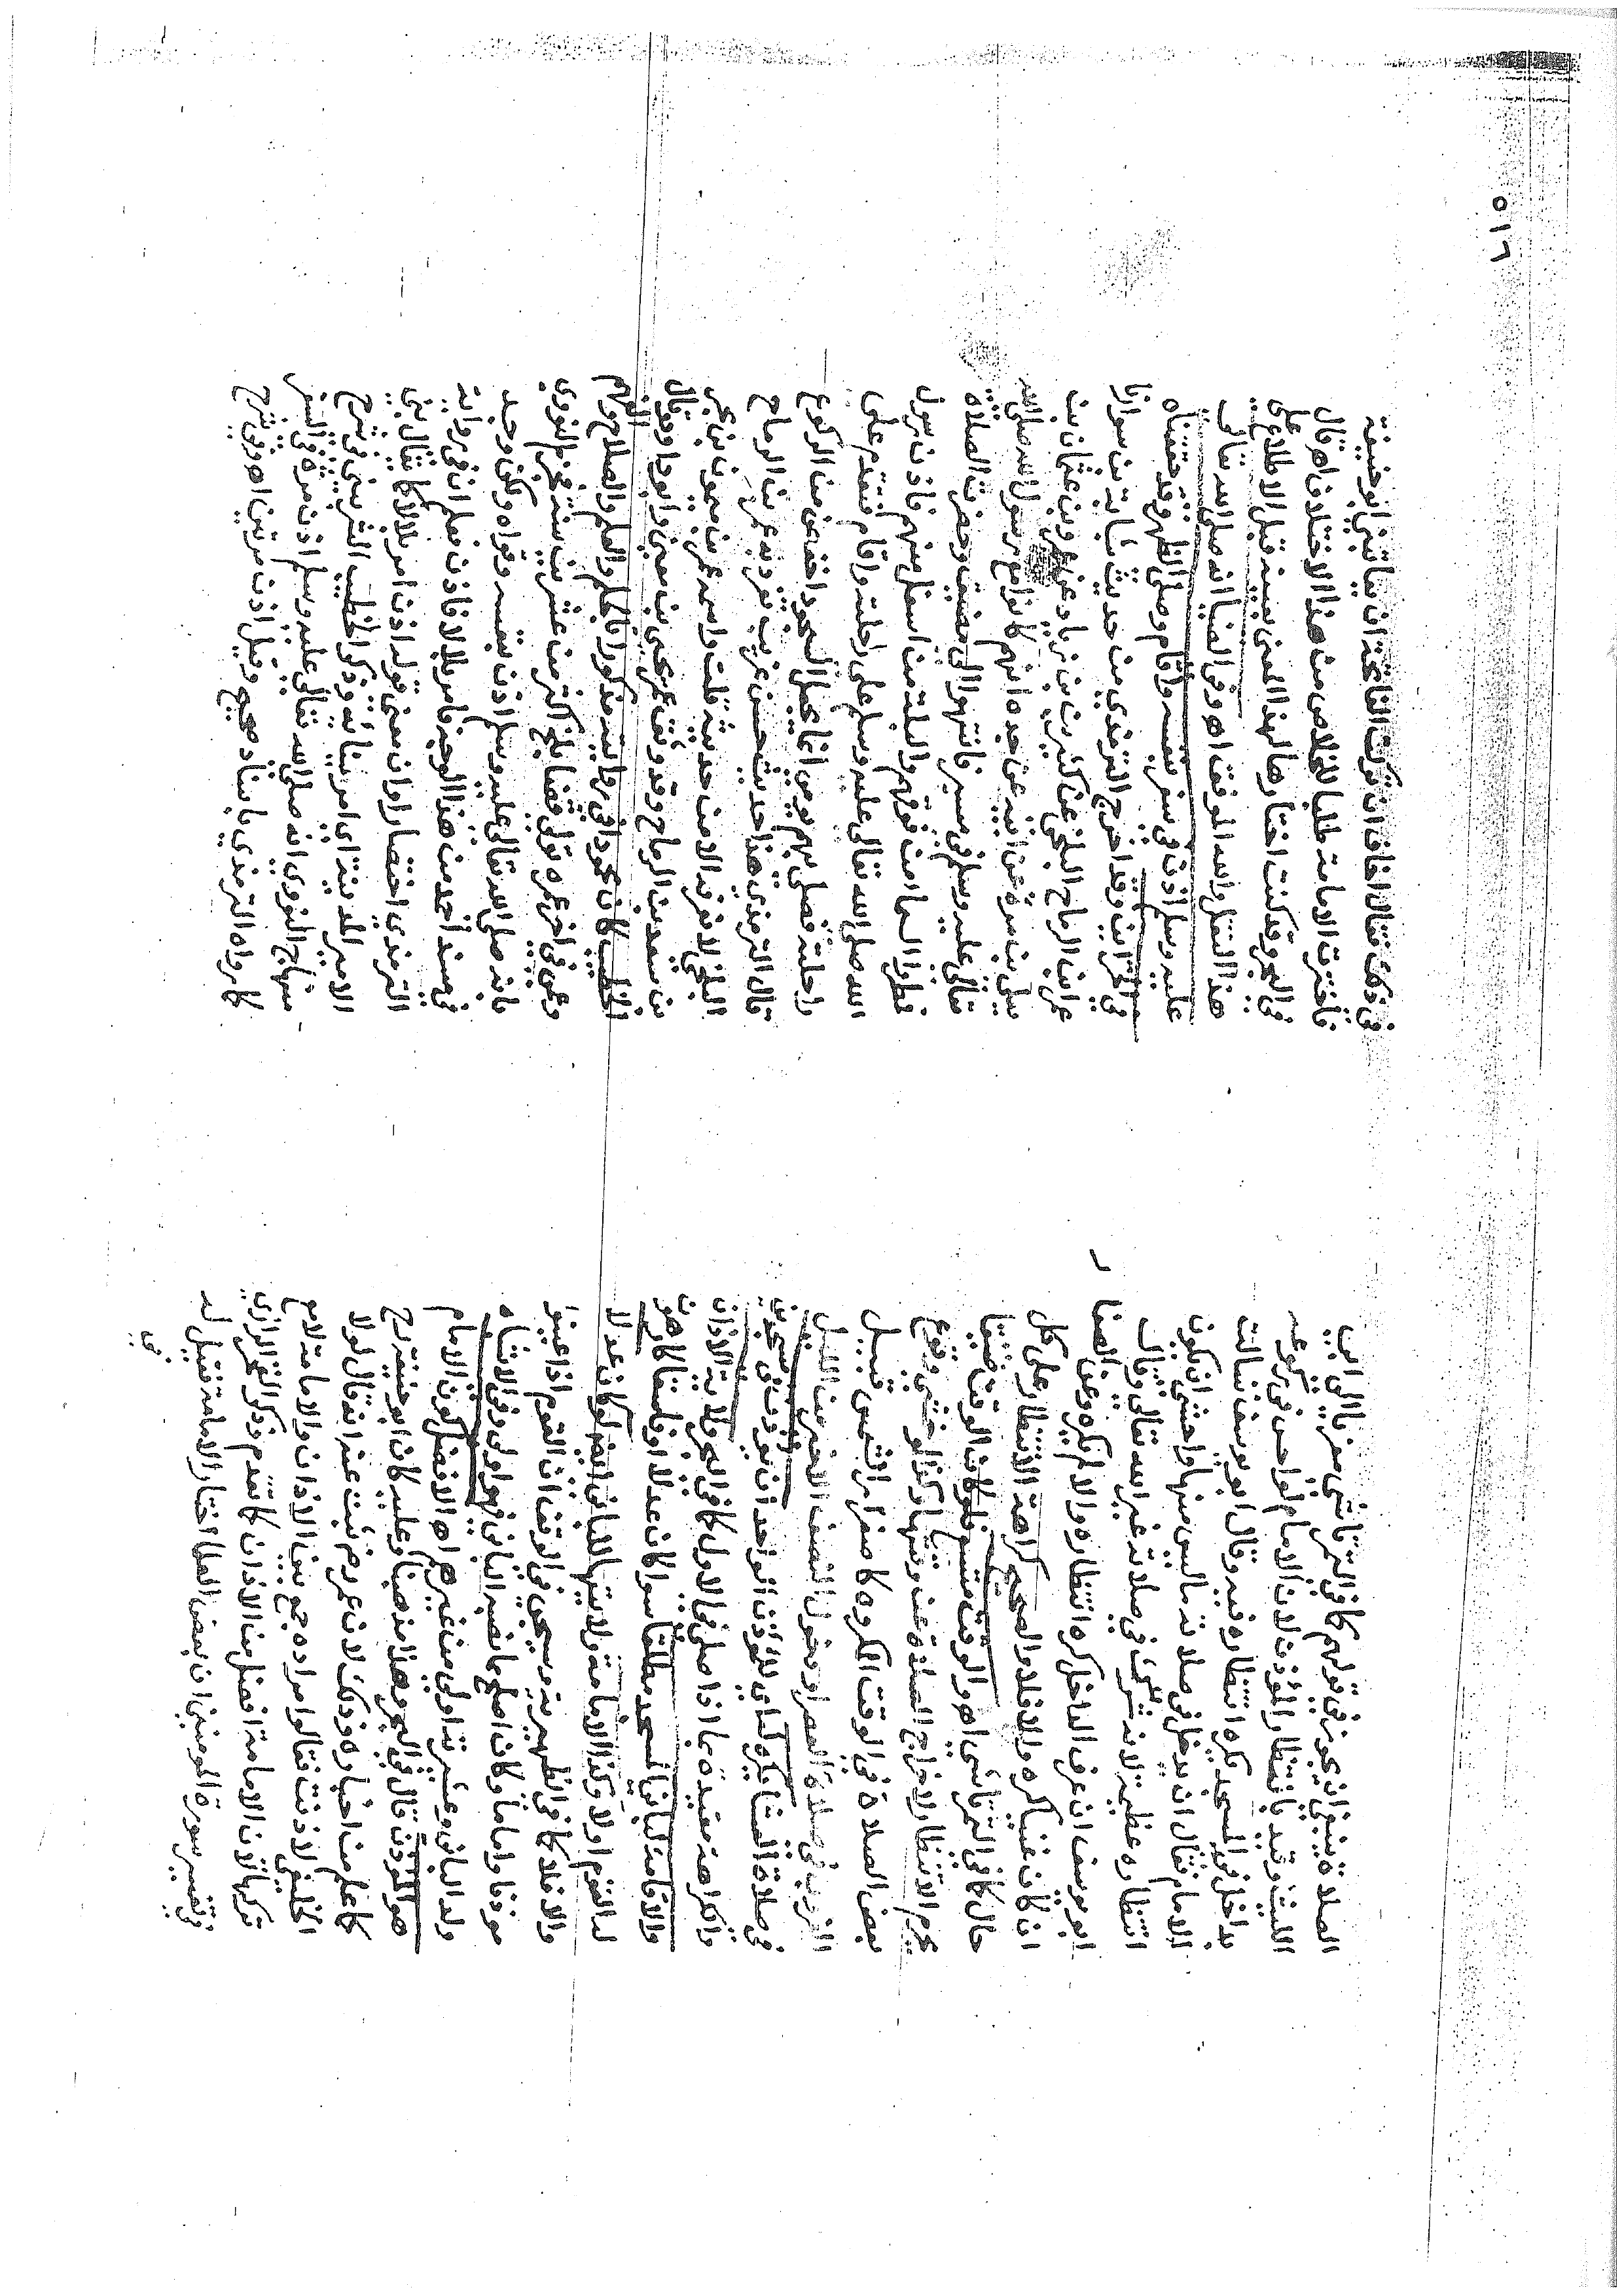 الصلاة ينبغي ان يجوز في قولهم كما في التتارخانية معزيا الى ابي
الليث وقيد بانتظار المؤذن لان الامام لو احس في ركوعه
بداخل في المسجد يكره انتظاره فيه وقال ابو يوسف سالت
الامام فقال ان يدخل في صلاته ما ليس منها واخشى ان يكون
انتظاره عظيمة لانه شرك في صلاته غير الله تعالى وقال
ابو يوسف ان عرف الداخل كره انتظاره والا لم يكره وعن الصفار
ان كان غنيا كره والا فلا والصحيح كراهة الانتظار على كل
حال كما في التتارخانية اهـ والوقت متسع فلو كان الوقت ضيقا
يحرم الانتظار لاخراج الصلاة عن وقتها وكذا لو خشي وقوع
بعض الصلاة في الوقت المكروه كاصفرار الشمس قبيل
الغروب في صلاة العصر او دخول النصف الاخير من الليل
في صلاة العشا يكره له اي للمؤذن الواحد ان يؤذن في مسجدين
والكراهة مقيدة بما اذا صلى في الاول كما في البحر ولاية الاذان
والاقامة لباني المسجد مطلقا سوا كان عدلا او فاسقا كما لو
له القوم اولا وكذا الامامة ولايتها للباني ايضا لو كان عدلا
والا فلا كما في الظهيرية وسيجي في الوقف ان القوم اذا عينوا
مؤذنا واماما وكان اصلح مما نصبه الباني فهو اولى وفي الاشباه
ولد الباني وعشيرته اولى من غيرهم اهـ الافضل كون الامام
هو المؤذن قال في البحر وهذا مذهبنا وعليه كان ابو حنيفة رح
كما علم من اخباره وذكر لان عمر رض ثبت عنه انه قال لولا
الخليفى لاذنت فقالوا مراده جمع بين الاذان والامامة لا مع
تركها لان الامامة افضل من الاذان كما تقدم وذكر الفخر الرازي
في تفسير سورة المؤمنين ان بعض العلما اختار الامامة فقيل له
في
٥١٦
في ذلك فقال اخاف ان تركت الفاتحة ان يعاتبني ابو حنيفة
فاخترت الامامة طلبا للخلاص من هذا الاختلاف اهـ قال
في البحر وقد كنت اختارها لهذا المعنى بعينه قبل الاطلاع على
هذا النقل والله الموفق اهـ وفي الضيا انه صلى الله تعالى
عليه وسلم اذن في سفر بنفسه واقام وصلى الظهر وقد حققناه
في الخزاين وقد اخرج الترمذي من حديث شبابة بن سوار نا
عمر ابن الرماح البلخي عن كثير بن زياد عن عمرو بن عثمان بن
يعلى بن مرة عن ابيه عن جده انهم كانوا مع رسول الله صلى الله
تعالى عليه وسلم في مسير فانتهوا الى مضيق وحضرت الصلاة
فمطروا السما من فوقهم والبلة من اسفل منهم فاذن رسول
الله صلى الله تعالى عليه وسلم على راحلته واقام فتقدم على
راحلته فصلى بهم يومي ايما يجعل السجود اخفض من الركوع
قال الترمذي هذا حديث غريب تفرد به عمر بن الرماح
البلخي لا يعرف الا من حديثه قلت واسمه عمر بن ميمون بن بحر
بن سعد بن الرماح وقد وثقه يحيى بن معين وابو داود وقال
الخطيب كان محمودا في ولايته مذكورا بالحلم والعلم والصلاح والفهم
وعمي في اخر عمره تولى قضا بلخ اكثر من عشرين سنة فجزم النووي
بانه صلى الله تعالى عليه وسلم اذن بنفسه وقواه ولكن وجد
في مسند احمد من هذا الوجه فامر بلالا فاذن فعلم ان في رواية
الترمذي اختصارا وان معنى قوله اذن امر بلالا كما يقال بنى
الامير المدينة اي امر ببنائه وذكر الخطيب الشربيني في شرح
منهاج النووي انه صلى الله تعالى عليه وسلم اذن مرة في السفر
كما رواه الترمذي باسناد صحيح وقيل اذن مرتين اهـ وفي شرح